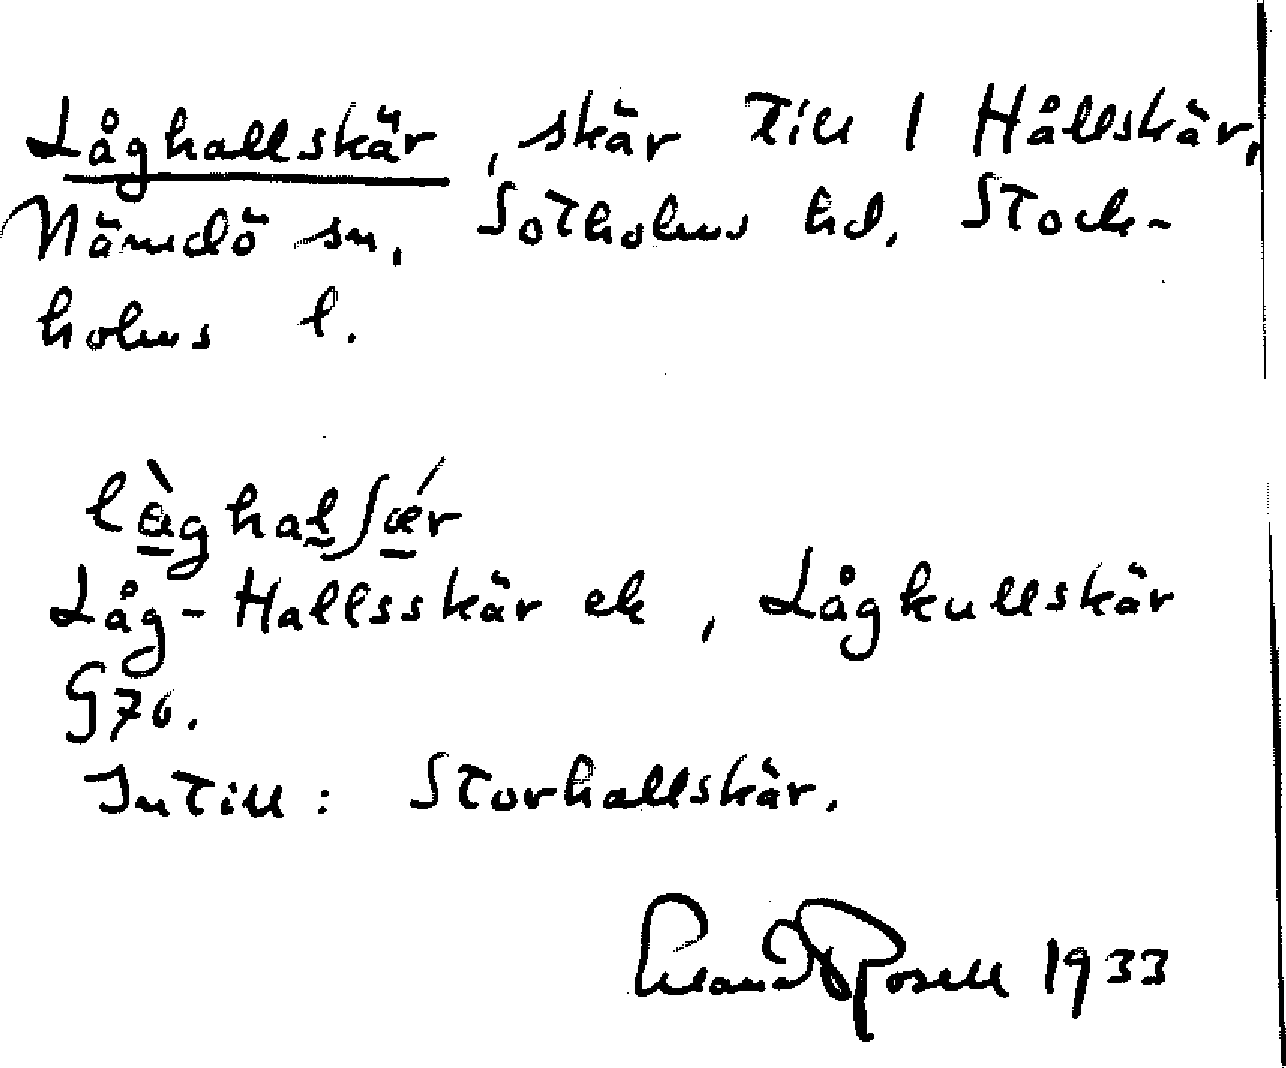 Låghallskär, skär till 1 Hållskär,
Nämdö sn, Sotholms hd, Stock-
holms l.
làghalʃǽr
Låg-Hallsskär ek, Lågkullskär
G76.
Intill: Storhallskär.
Rosell 1933